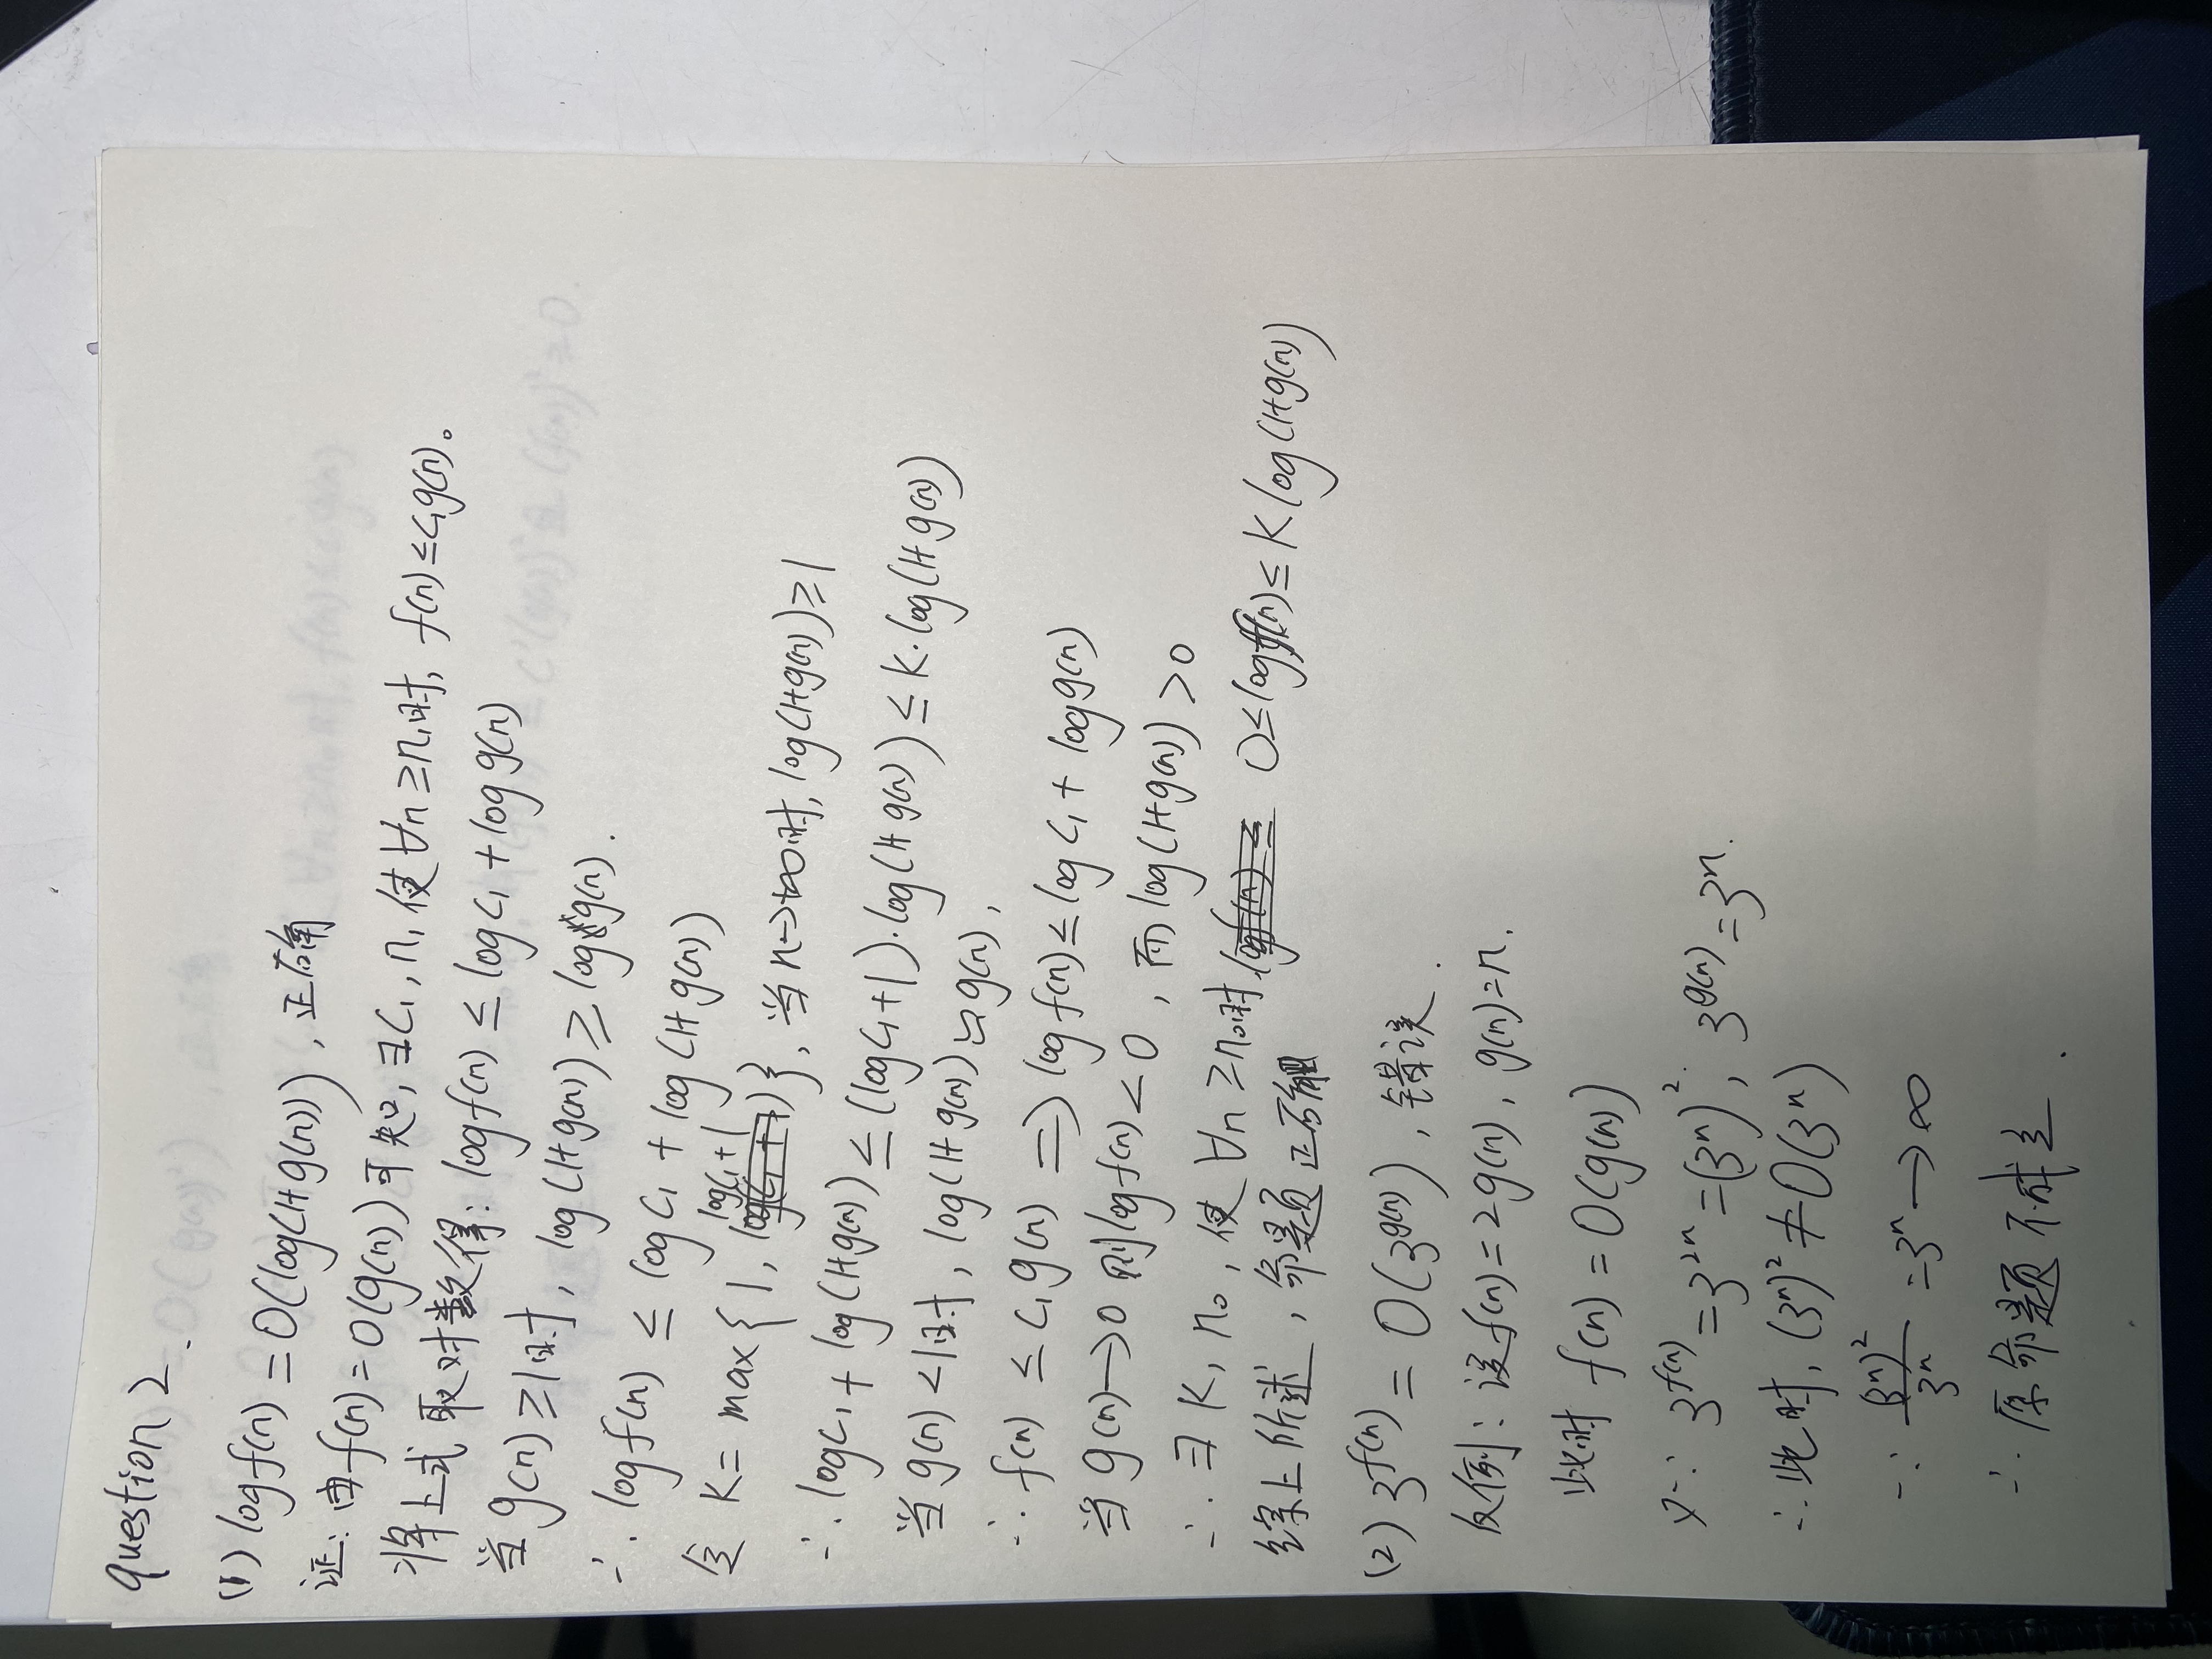 question 2.
(1) log f(n) = O(log(1+g(n))), 正确
证: 由 f(n) = O(g(n)) 可知, ∃C₁, n₁ 使 ∀n ≥ n₁时, f(n) ≤ C₁g(n)。
将上式取对数得: log f(n) ≤ log C₁ + log g(n)
当 g(n) ≥ 1时, log(1+g(n)) ≥ log g(n).
∴ log f(n) ≤ log C₁ + log(1+g(n))
令 K = max{1, log C₁+1}, 当n→+∞时, log(1+g(n)) ≥ 1
∴ log C₁ + log(1+g(n)) ≤ (log C₁+1)·log(1+g(n)) ≤ K·log(1+g(n))
当 g(n) < 1时, log(1+g(n)) ≈ g(n),
∴ f(n) ≤ C₁g(n) ⇒ log f(n) ≤ log C₁ + log g(n)
当 g(n)→0 则 log f(n) < 0, 而 log(1+g(n)) > 0
∴ ∃ K, n₀, 使 ∀n ≥ n₀时, 0 ≤ log f(n) ≤ K log(1+g(n))
综上所述, 命题正确
(2) 3^{f(n)} = O(3^{g(n)}), 错误.
反例: 设 f(n) = 2g(n), g(n) = n.
此时 f(n) = O(g(n))
又∵ 3^{f(n)} = 3^{2n} = (3ⁿ)², 3^{g(n)} = 3ⁿ.
∴ 此时, (3ⁿ)² ≠ O(3ⁿ)
∵ (3ⁿ)²/3ⁿ = 3ⁿ → ∞
∴ 原命题不成立.